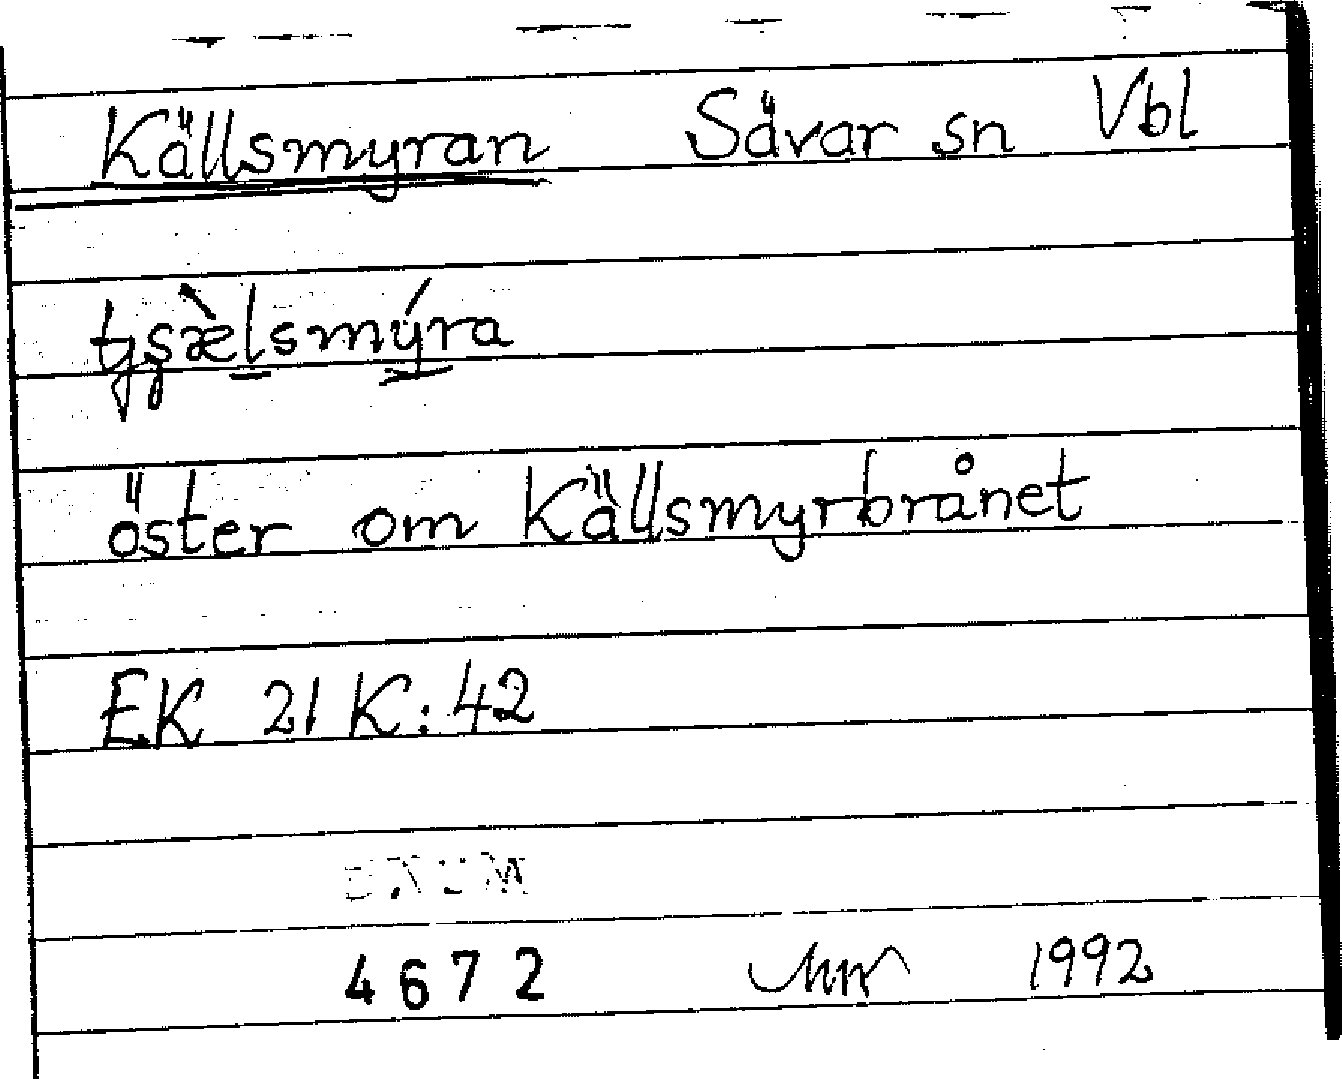 Källsmyran Sävar sn Vbl
tjsæ̀lsmýra
öster om Källsmyrbrånet
EK 21 K:42
4672 1992